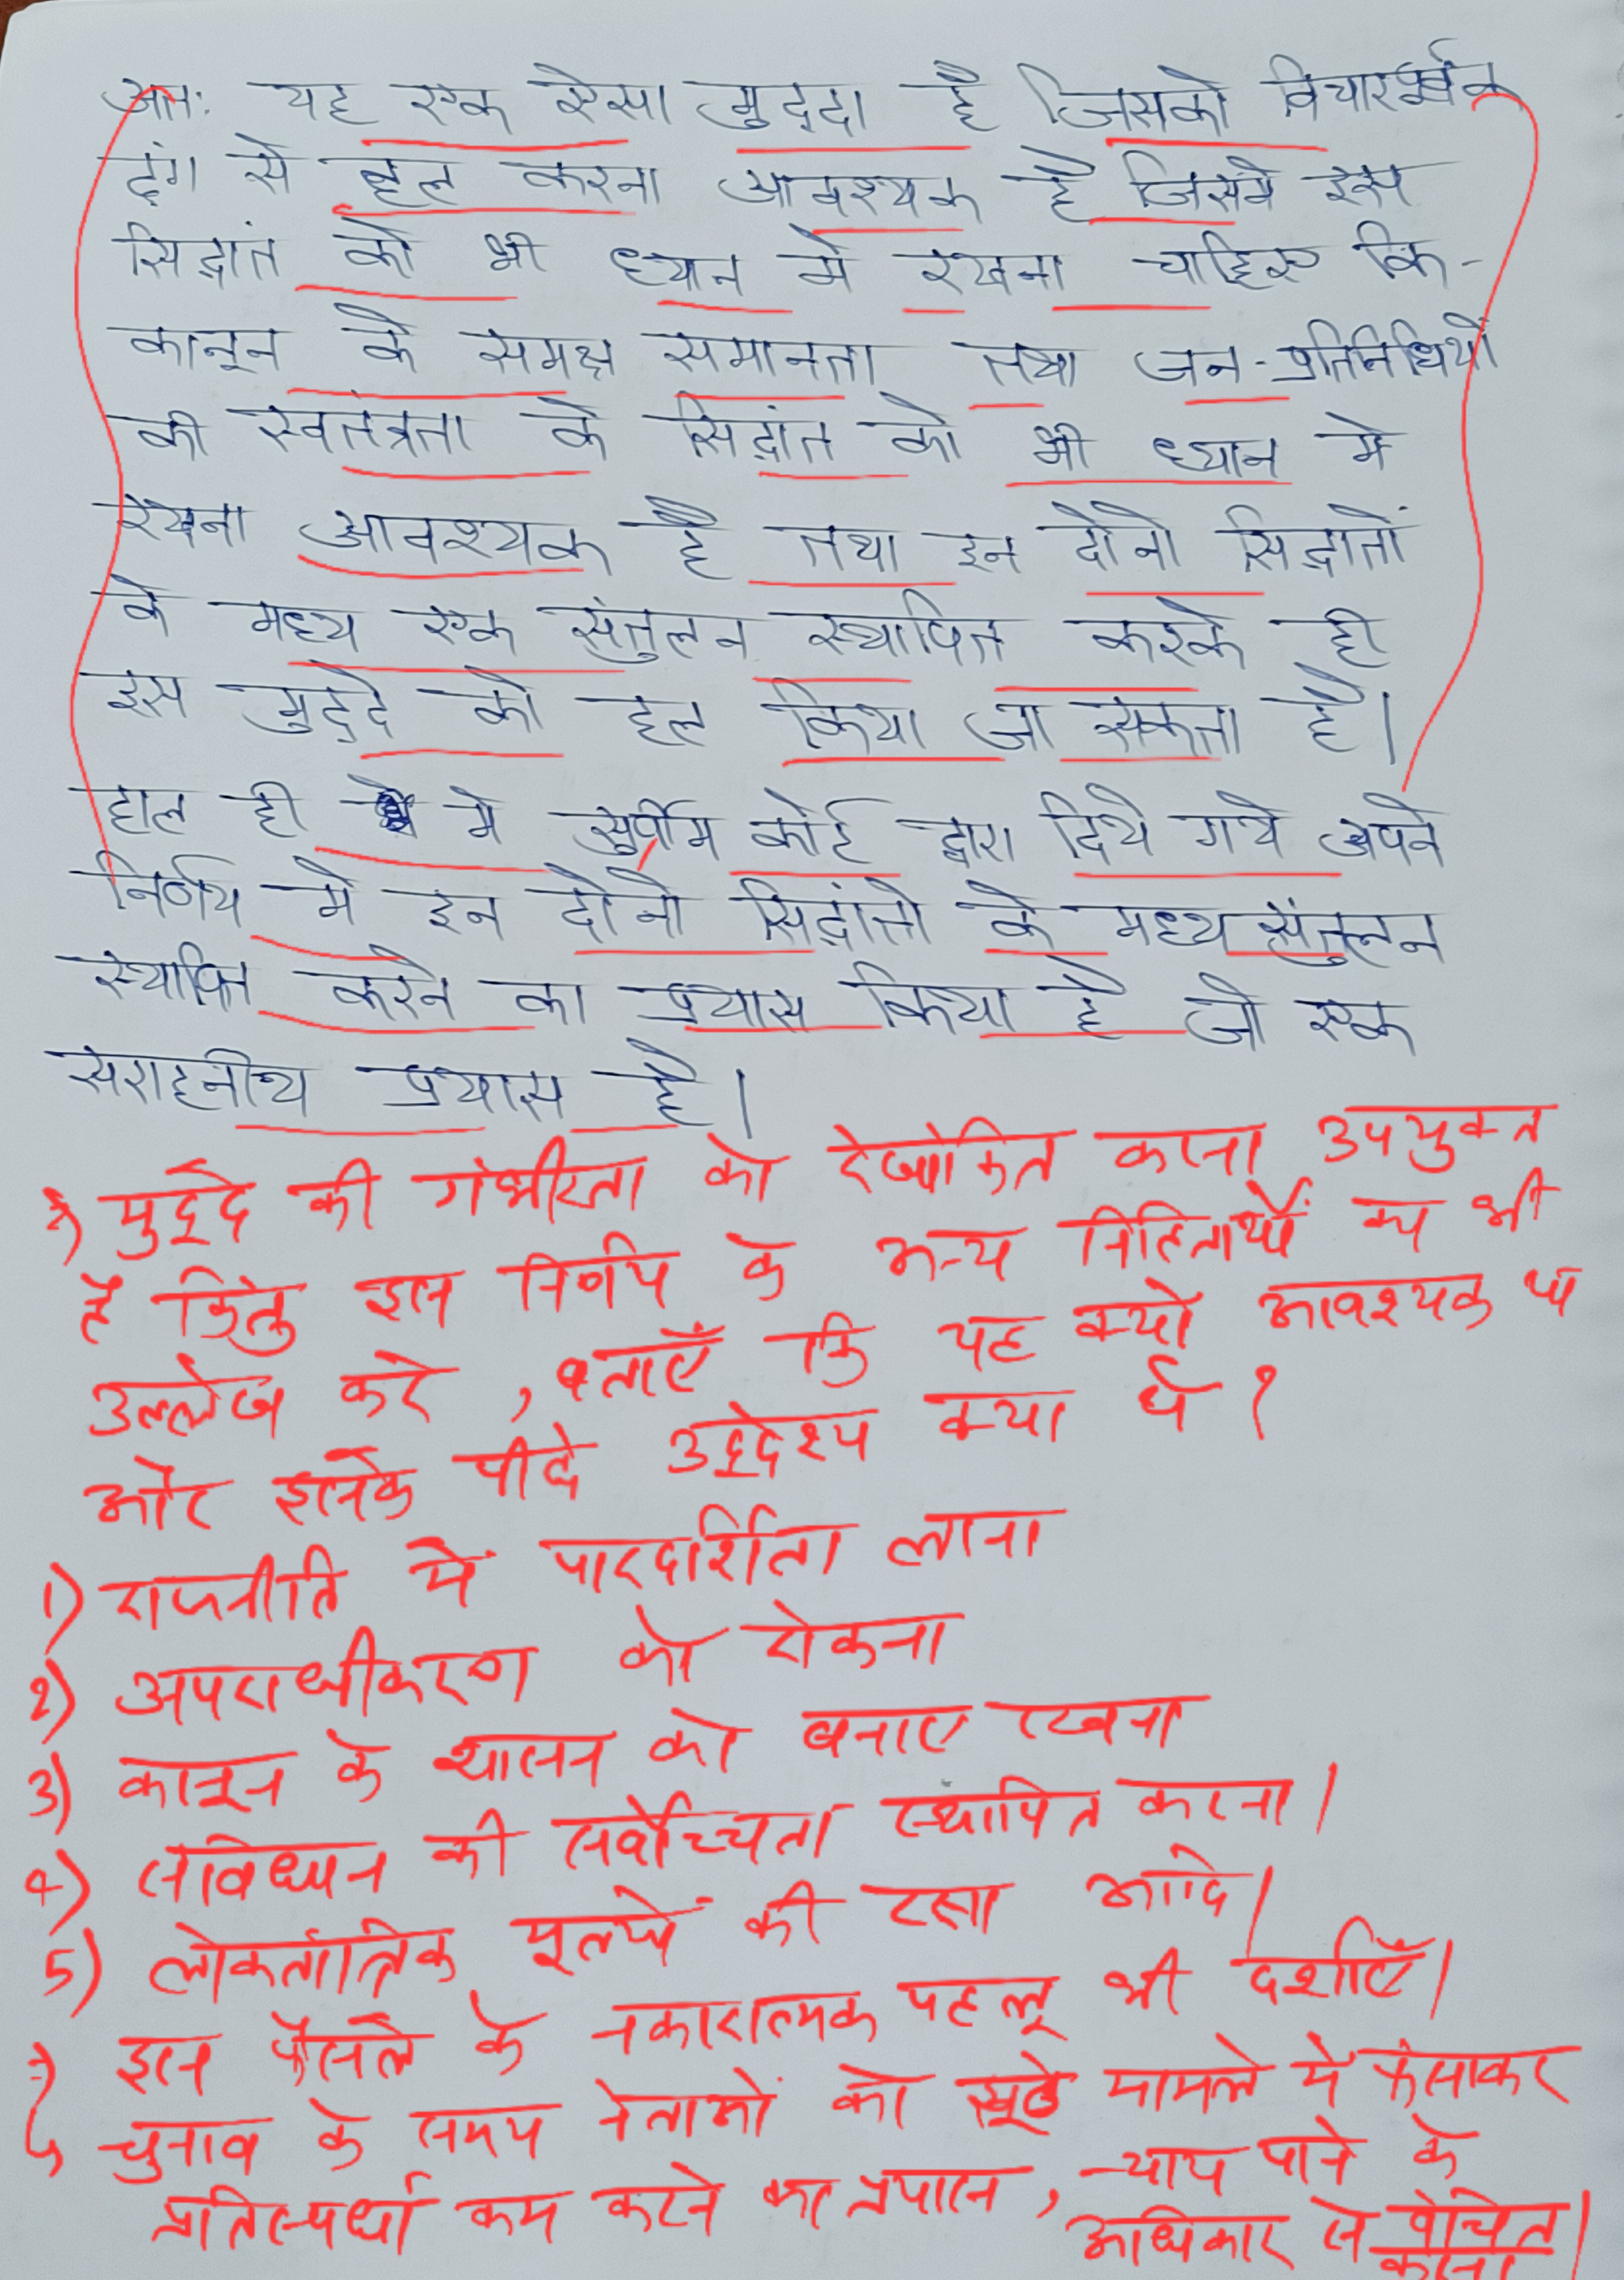 अतः यह एक ऐसा मुद्दा है जिसको विचारपूर्वक
ढंग से हल करना आवश्यक है जिसमें इस
सिद्धांत को भी ध्यान में रखना चाहिए कि-
कानून के समक्ष समानता तथा जन-प्रतिनिधियों
की स्वतंत्रता के सिद्धांत को भी ध्यान में
रखना आवश्यक है तथा इन दोनों सिद्धातों
के मध्य एक संतुलन स्थापित करके ही
इस मुद्दे को हल किया जा सकता है।
हाल ही में सुप्रीम कोर्ट द्वारा दिये गये अपने
निर्णय में इन दोनो सिद्धांतो के मध्य संतुलन
स्थापित करने का प्रयास किया है जो एक
सराहनीय प्रयास है।
मुद्दे की गंभीरता को रेखांकित करना उपयुक्त
है किंतु इस निर्णय के अन्य निहितार्थों का भी
उल्लेख करें, बताएँ कि यह क्यों आवश्यक था
और इसके पीछे उद्देश्य क्या थे?
1) राजनीति में पारदर्शिता लाना
2) अपराधीकरण को रोकना
3) कानून के शासन को बनाए रखना
4) संविधान की सर्वोच्चता स्थापित करना।
5) लोकतांत्रिक मूल्यों की रक्षा आदि।
इस फैसले के नकारात्मक पहलू भी दर्शाएँ।
चुनाव के समय नेताओं को झूठे मामले में फंसाकर
प्रतिस्पर्धा कम करने का प्रयास, न्याय पाने के
अधिकार से वंचित
करना।